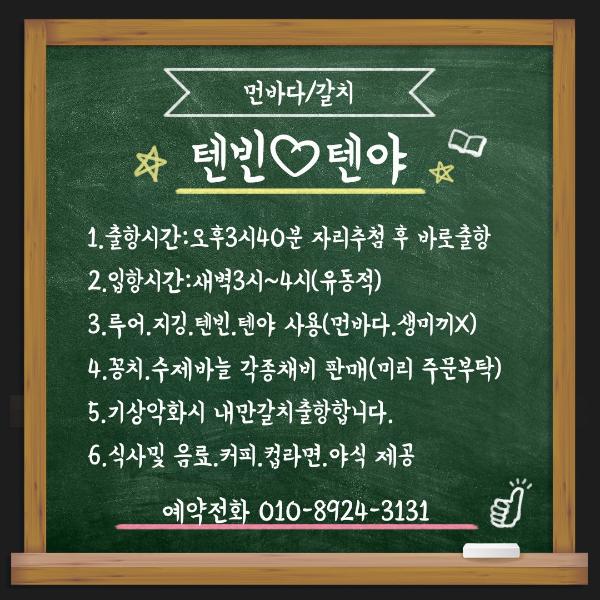 먼바다/갈치
텐빈♡텐야
1.출항시간:오후3시40분 자리추첨 후 바로출항
2.입항시간:새벽3시~4시(유동적)
3.루어.지깅.텐빈.텐야 사용(먼바다.생미끼X)
4.꽁치.수제바늘 각종채비 판매(미리 주문부탁)
5.기상악화시 내만갈치출항합니다.
6.식사및 음료.커피.컵라면.야식 제공
예약전화 010-8924-3131